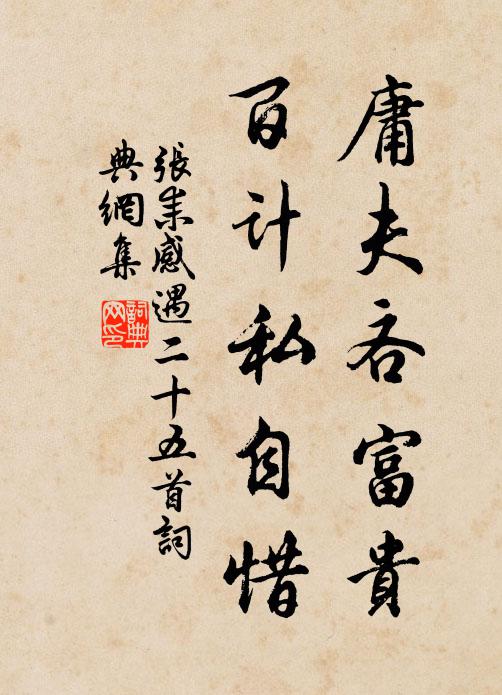 庸夫吝富貴
百计私自惜
張耒感遇二十五首詞
典網集
詞典
网印